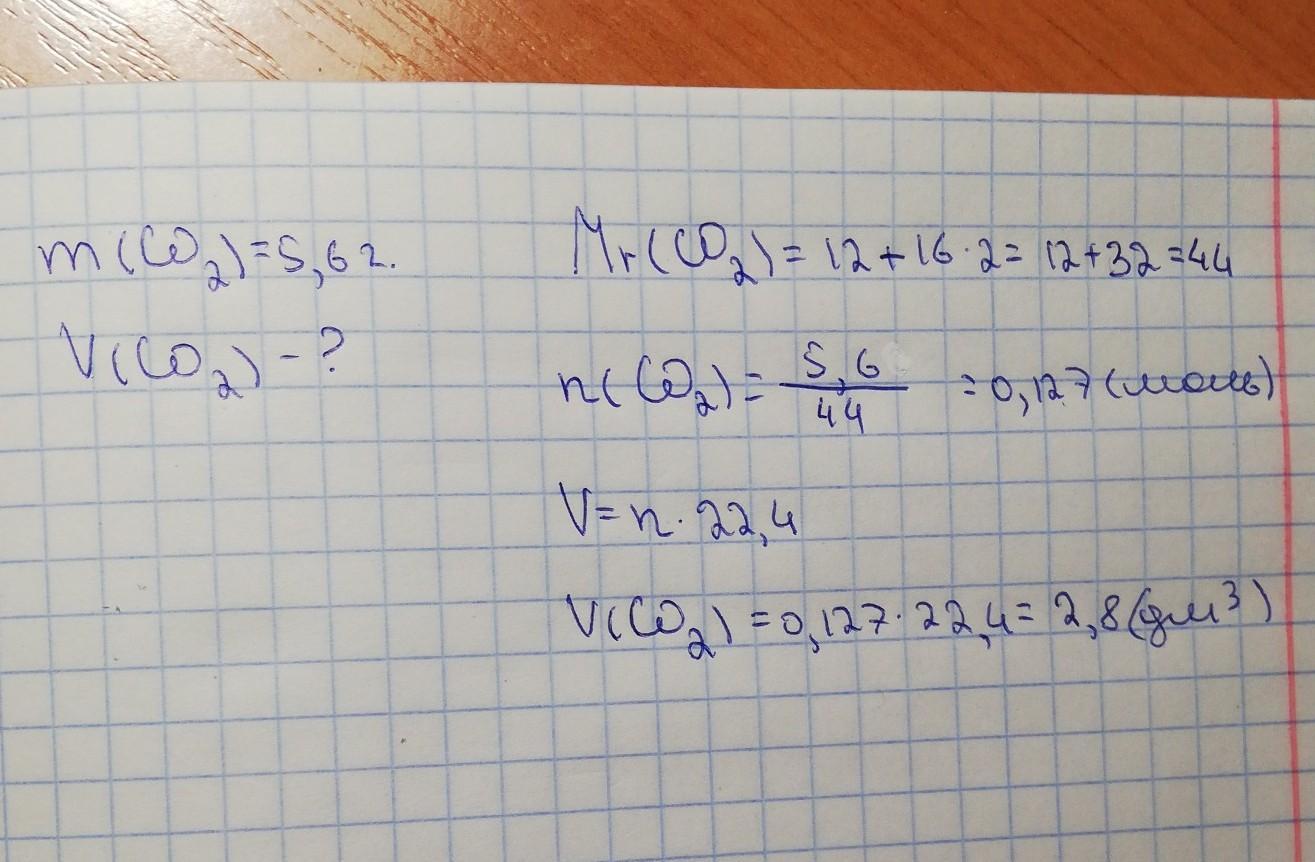 m(CO₂)=5,6г.
V(CO₂) - ?
Mr(CO₂)= 12+16·2= 12+32=44
n(CO₂)= 5,6/44 =0,127(моль)
V=n·22,4
V(CO₂)=0,127·22,4=2,8(дм³)